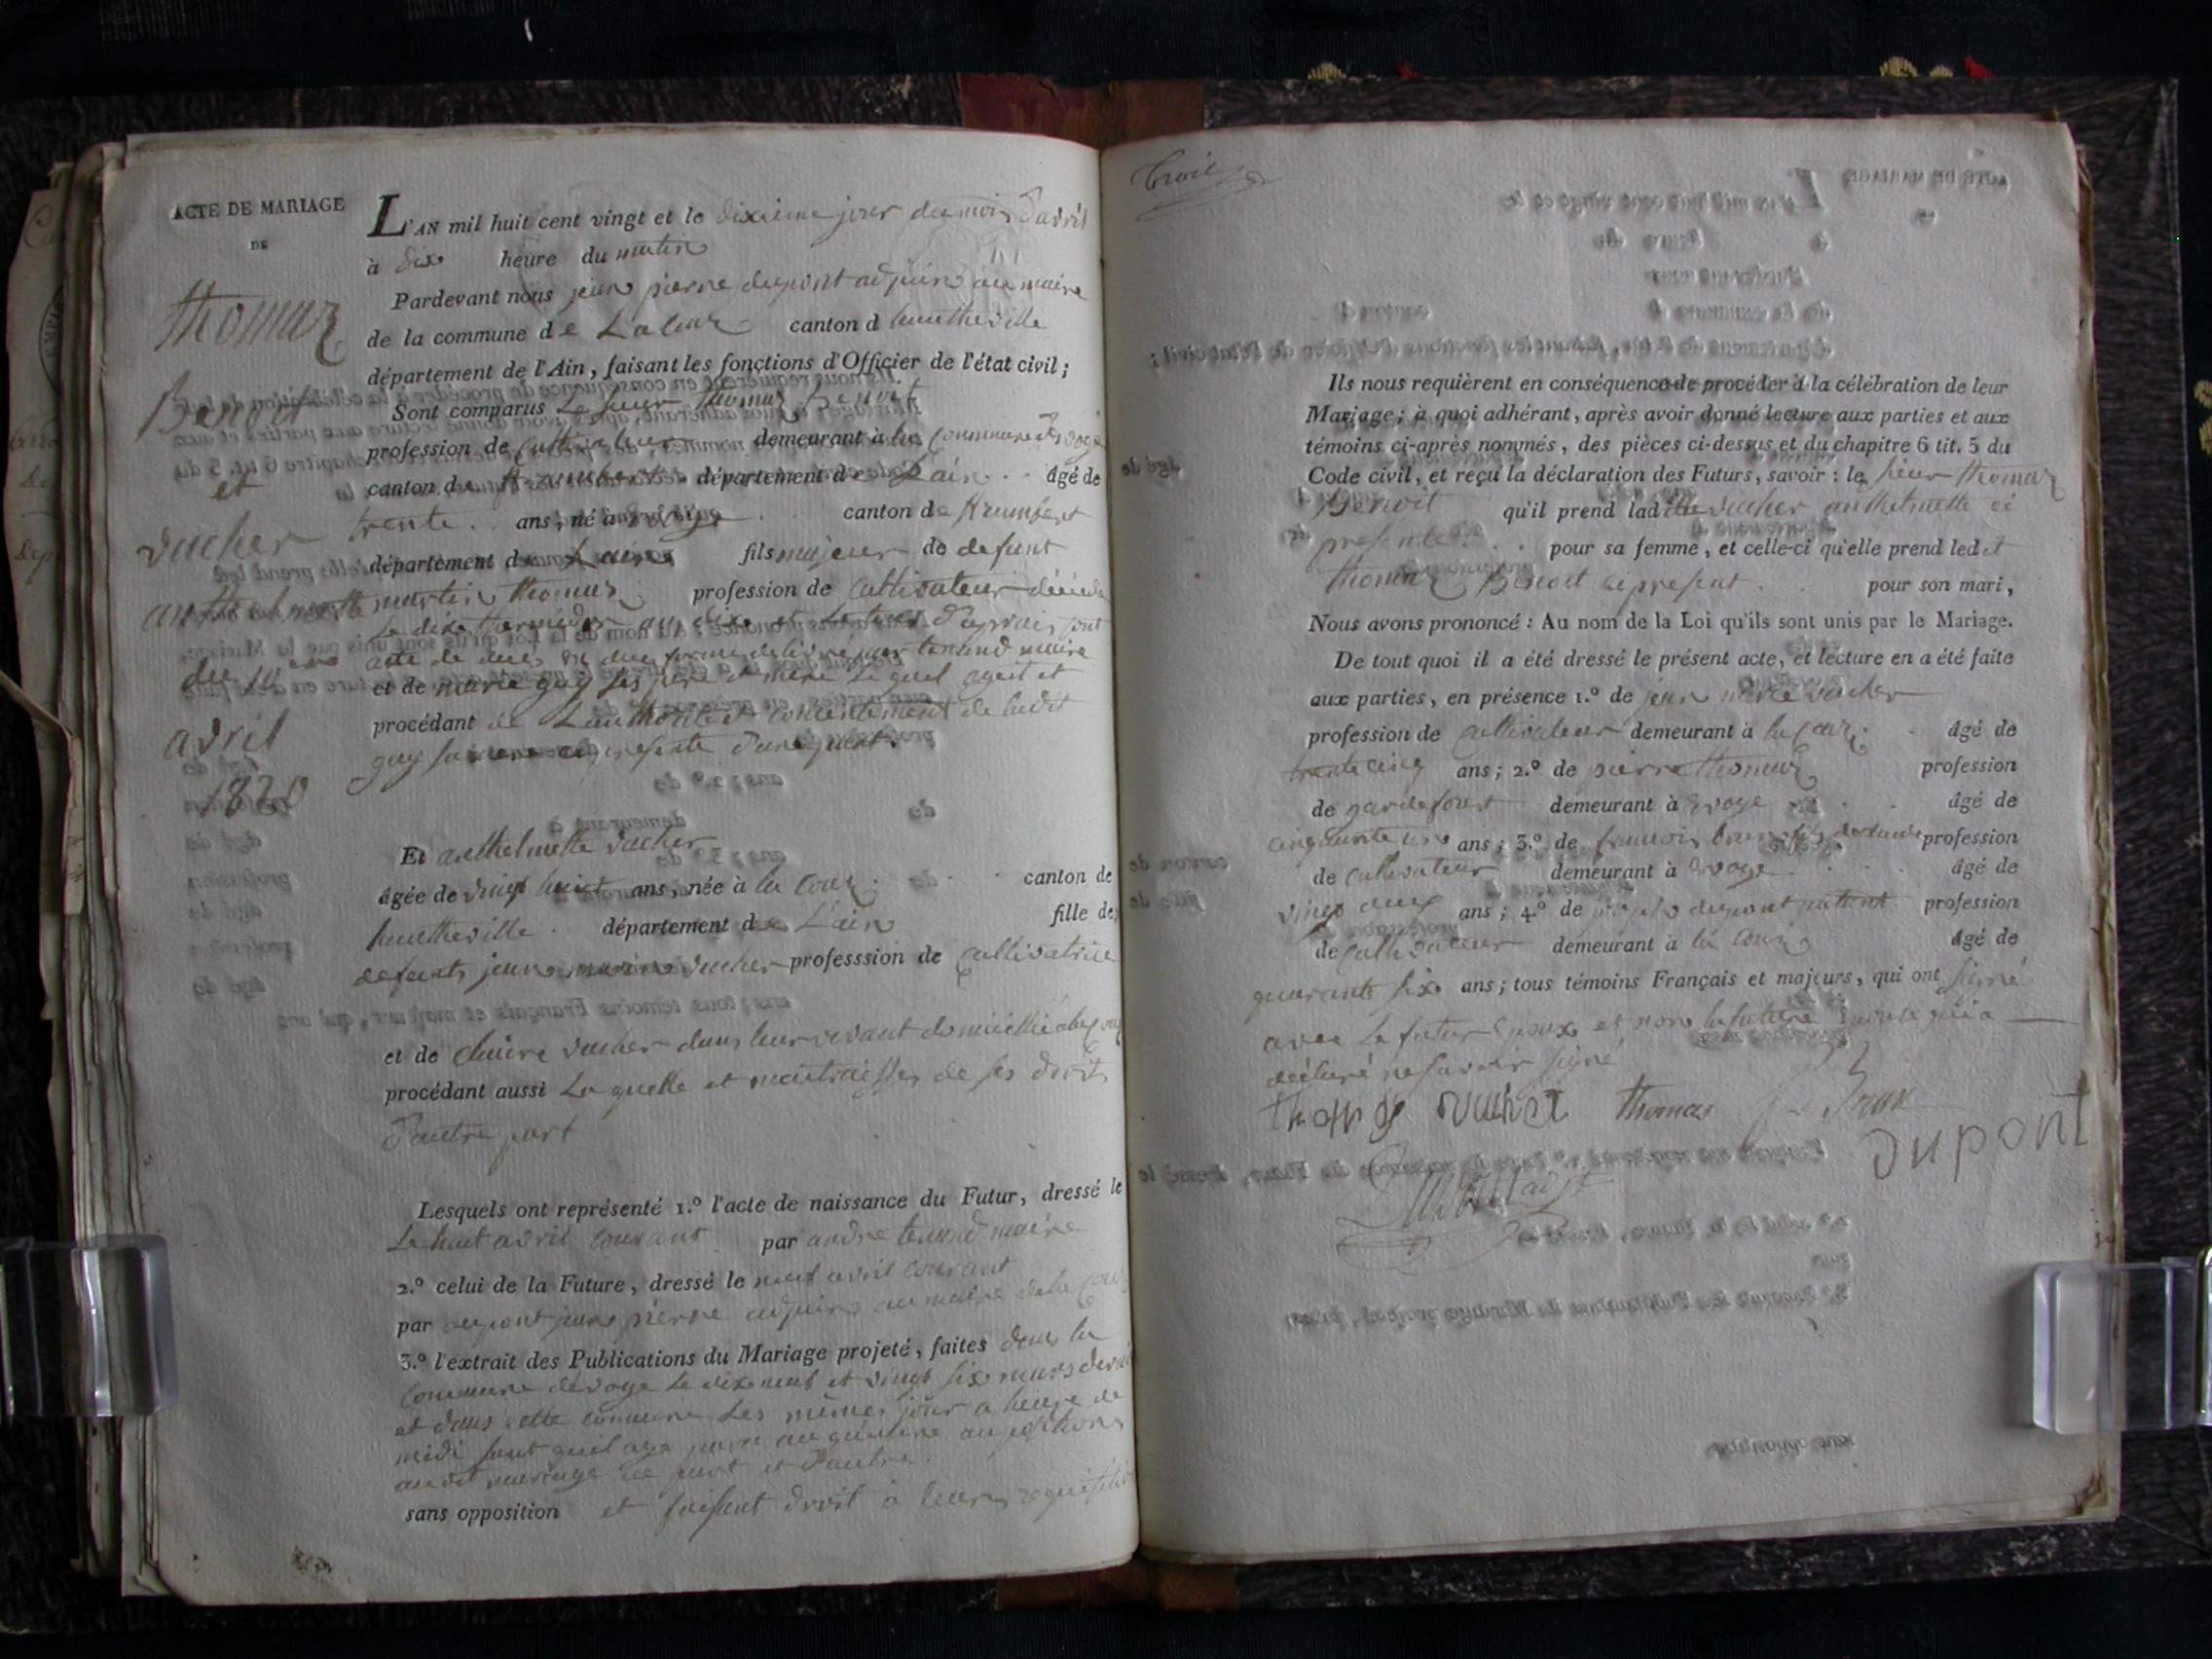 ACTE DE MARIAGE
DE
thomaz
Benoit
et
vucher
anthelmette
du 10
avril
1820
L'AN mil huit cent vingt et le dixieme jour du mois d'avril
à dix heure du matin
Pardevant nous jean pierre dupont adjoin au maire
de la commune de La couz canton d hautheville
département de l'Ain, faisant les fonctions d'Officier de l'état civil;
Sont comparus Le sieur thomaz Benoit
profession de cultivateur demeurant à la commune
canton de département de Lain âgé de
trente ans, né à canton de
département de Lain fils majeur de defunt
martin thomaz profession de cultivateur décédé
Le dix thermidor an dix
acte de deces en due forme delivré par tenand maire
et de marie guy ses pere et mere Lequel agit et
procédant de Lauthorité et consentement de ladit
guy sa mere ici presente d'une part
Et anthelmette vucher
âgée de vingt huit ans, née à la couz canton de
hautheville département de L'ain fille de
defunts jean vucher professsion de cultivatrice
et de claire vucher dans leur vivant
procédant aussi La quelle et maitraisse de ses droits
d'autre part
Lesquels ont représenté 1.º l'acte de naissance du Futur, dressé le
Le huit avril courant par andre tenand maire
2.º celui de la Future, dressé le neuf avril courant
par dupont jean pierre adjoint au maire de la couz
3.º l'extrait des Publications du Mariage projeté, faites dans la
commune d'evoge Le dix neuf et vingt six mars dernier
et dans cette commune Les mêmes jour a heure de
midi
audit mariage de part et d'autre
sans opposition et faisant droit à leur requisition
Ils nous requièrent en conséquence de procéder à la célébration de leur
Mariage; à quoi adhérant, après avoir donné lecture aux parties et aux
témoins ci-après nommés, des pièces ci-dessus et du chapitre 6 tit. 5 du
Code civil, et reçu la déclaration des Futurs, savoir : le sieur thomaz
Benoit qu'il prend ladite vucher anthelmette ci
presente pour sa femme, et celle-ci qu'elle prend ledit
thomaz Benoit ci present pour son mari,
Nous avons prononcé : Au nom de la Loi qu'ils sont unis par le Mariage.
De tout quoi il a été dressé le présent acte, et lecture en a été faite
aux parties, en présence 1.º de jean marie vucher
profession de cultivateur demeurant à la couz âgé de
trente cinq ans; 2.º de pierre thomaz profession
de garde forest demeurant à evoge âgé de
cinquante un ans; 3.º de francois profession
de cultivateur demeurant à evoge âgé de
vingt deux ans; 4.º de dupont profession
de cultivateur demeurant à la couz âgé de
quarante six ans; tous témoins Français et majeurs, qui ont signé
avec Le futur epoux et non la future epouse qui a
déclaré ne savoir signé
thomas
Dupont